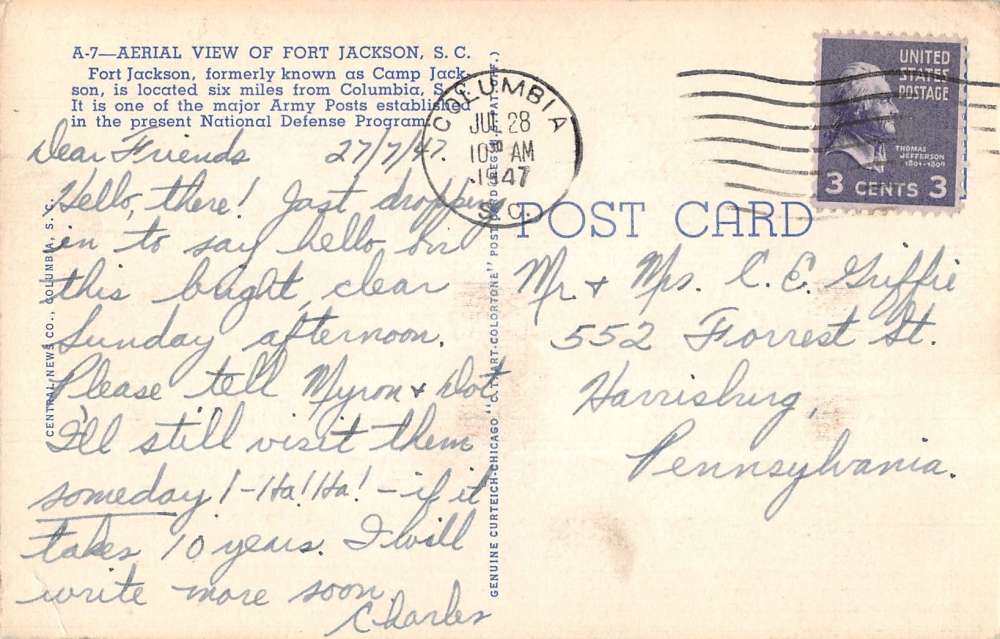 A-7—AERIAL VIEW OF FORT JACKSON, S. C.
Fort Jackson, formerly known as Camp Jack-
son, is located six miles from Columbia, S. C.
It is one of the major Army Posts established
in the present National Defense Program.
Dear Friends 27/7/47.
Hello, there! Just dropping
in to say hello on
this bright, clear
Sunday afternoon.
Please tell Myron & Dot
I'll still visit them
someday! - Ha! Ha! - if it
takes 10 years. I will
write more soon
Charles
CENTRAL NEWS CO., COLUMBIA, S. C.
GENUINE CURTEICH-CHICAGO "C. T. ART-COLORTONE" POST CARD (REG. U. S. PAT. OFF.)
COLUMBIA
JUL 28
10 30 AM
1947
S.C.
UNITED
STATES
POSTAGE
THOMAS
JEFFERSON
1801-1809
3 CENTS 3
POST CARD
Mr. & Mrs. C. E. Griffie
552 Forrest St.
Harrisburg,
Pennsylvania.